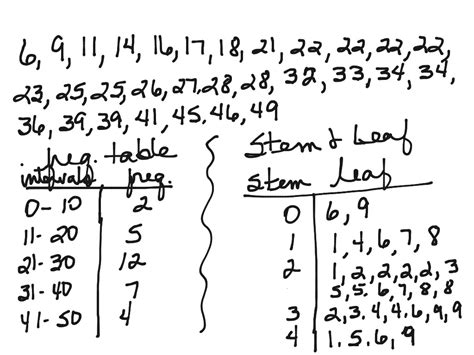 6, 9, 11, 14, 16, 17, 18, 21, 22, 22, 22, 22,
23, 25, 25, 26, 27, 28, 28, 32, 33, 34, 34,
36, 39, 39, 41, 45, 46, 49
freq. table
intervals freq.
0-10 2
11-20 5
21-30 12
31-40 7
41-50 4
Stem & Leaf
Stem leaf
0 6, 9
1 1, 4, 6, 7, 8
2 1, 2, 2, 2, 2, 3
5, 5, 6, 7, 8, 8
3 2, 3, 4, 4, 6, 9, 9
4 1, 5, 6, 9